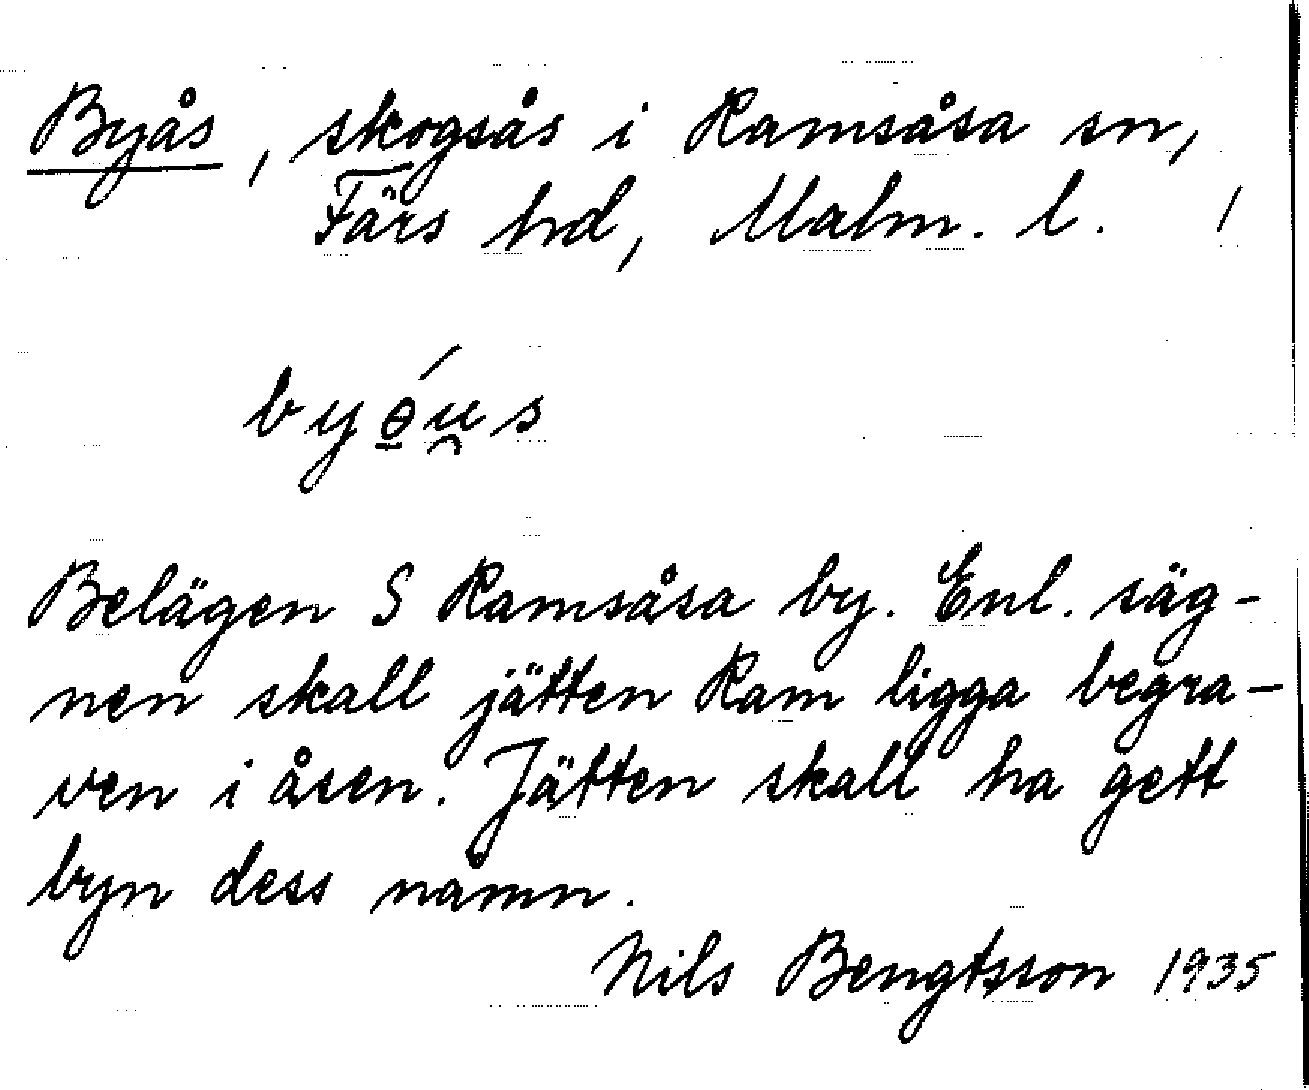 Byås, skogsås i Ramsåsa sn,
Färs hd, Malm. l. /
byɵ̱́u̯s
Belägen S Ramsåsa by. Enl. säg-
nen skall jätten Ram ligga begra-
ven i åsen. Jätten skall ha gett
byn dess namn.
Nils Bengtsson 1935